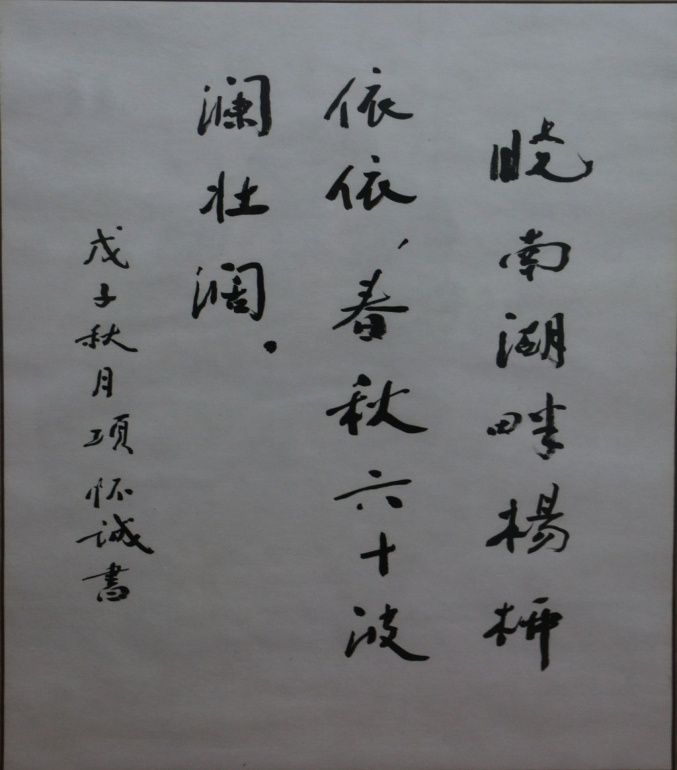 晓南湖畔杨柳
依依、春秋六十波
澜壮阔.
戊子秋月项怀诚書